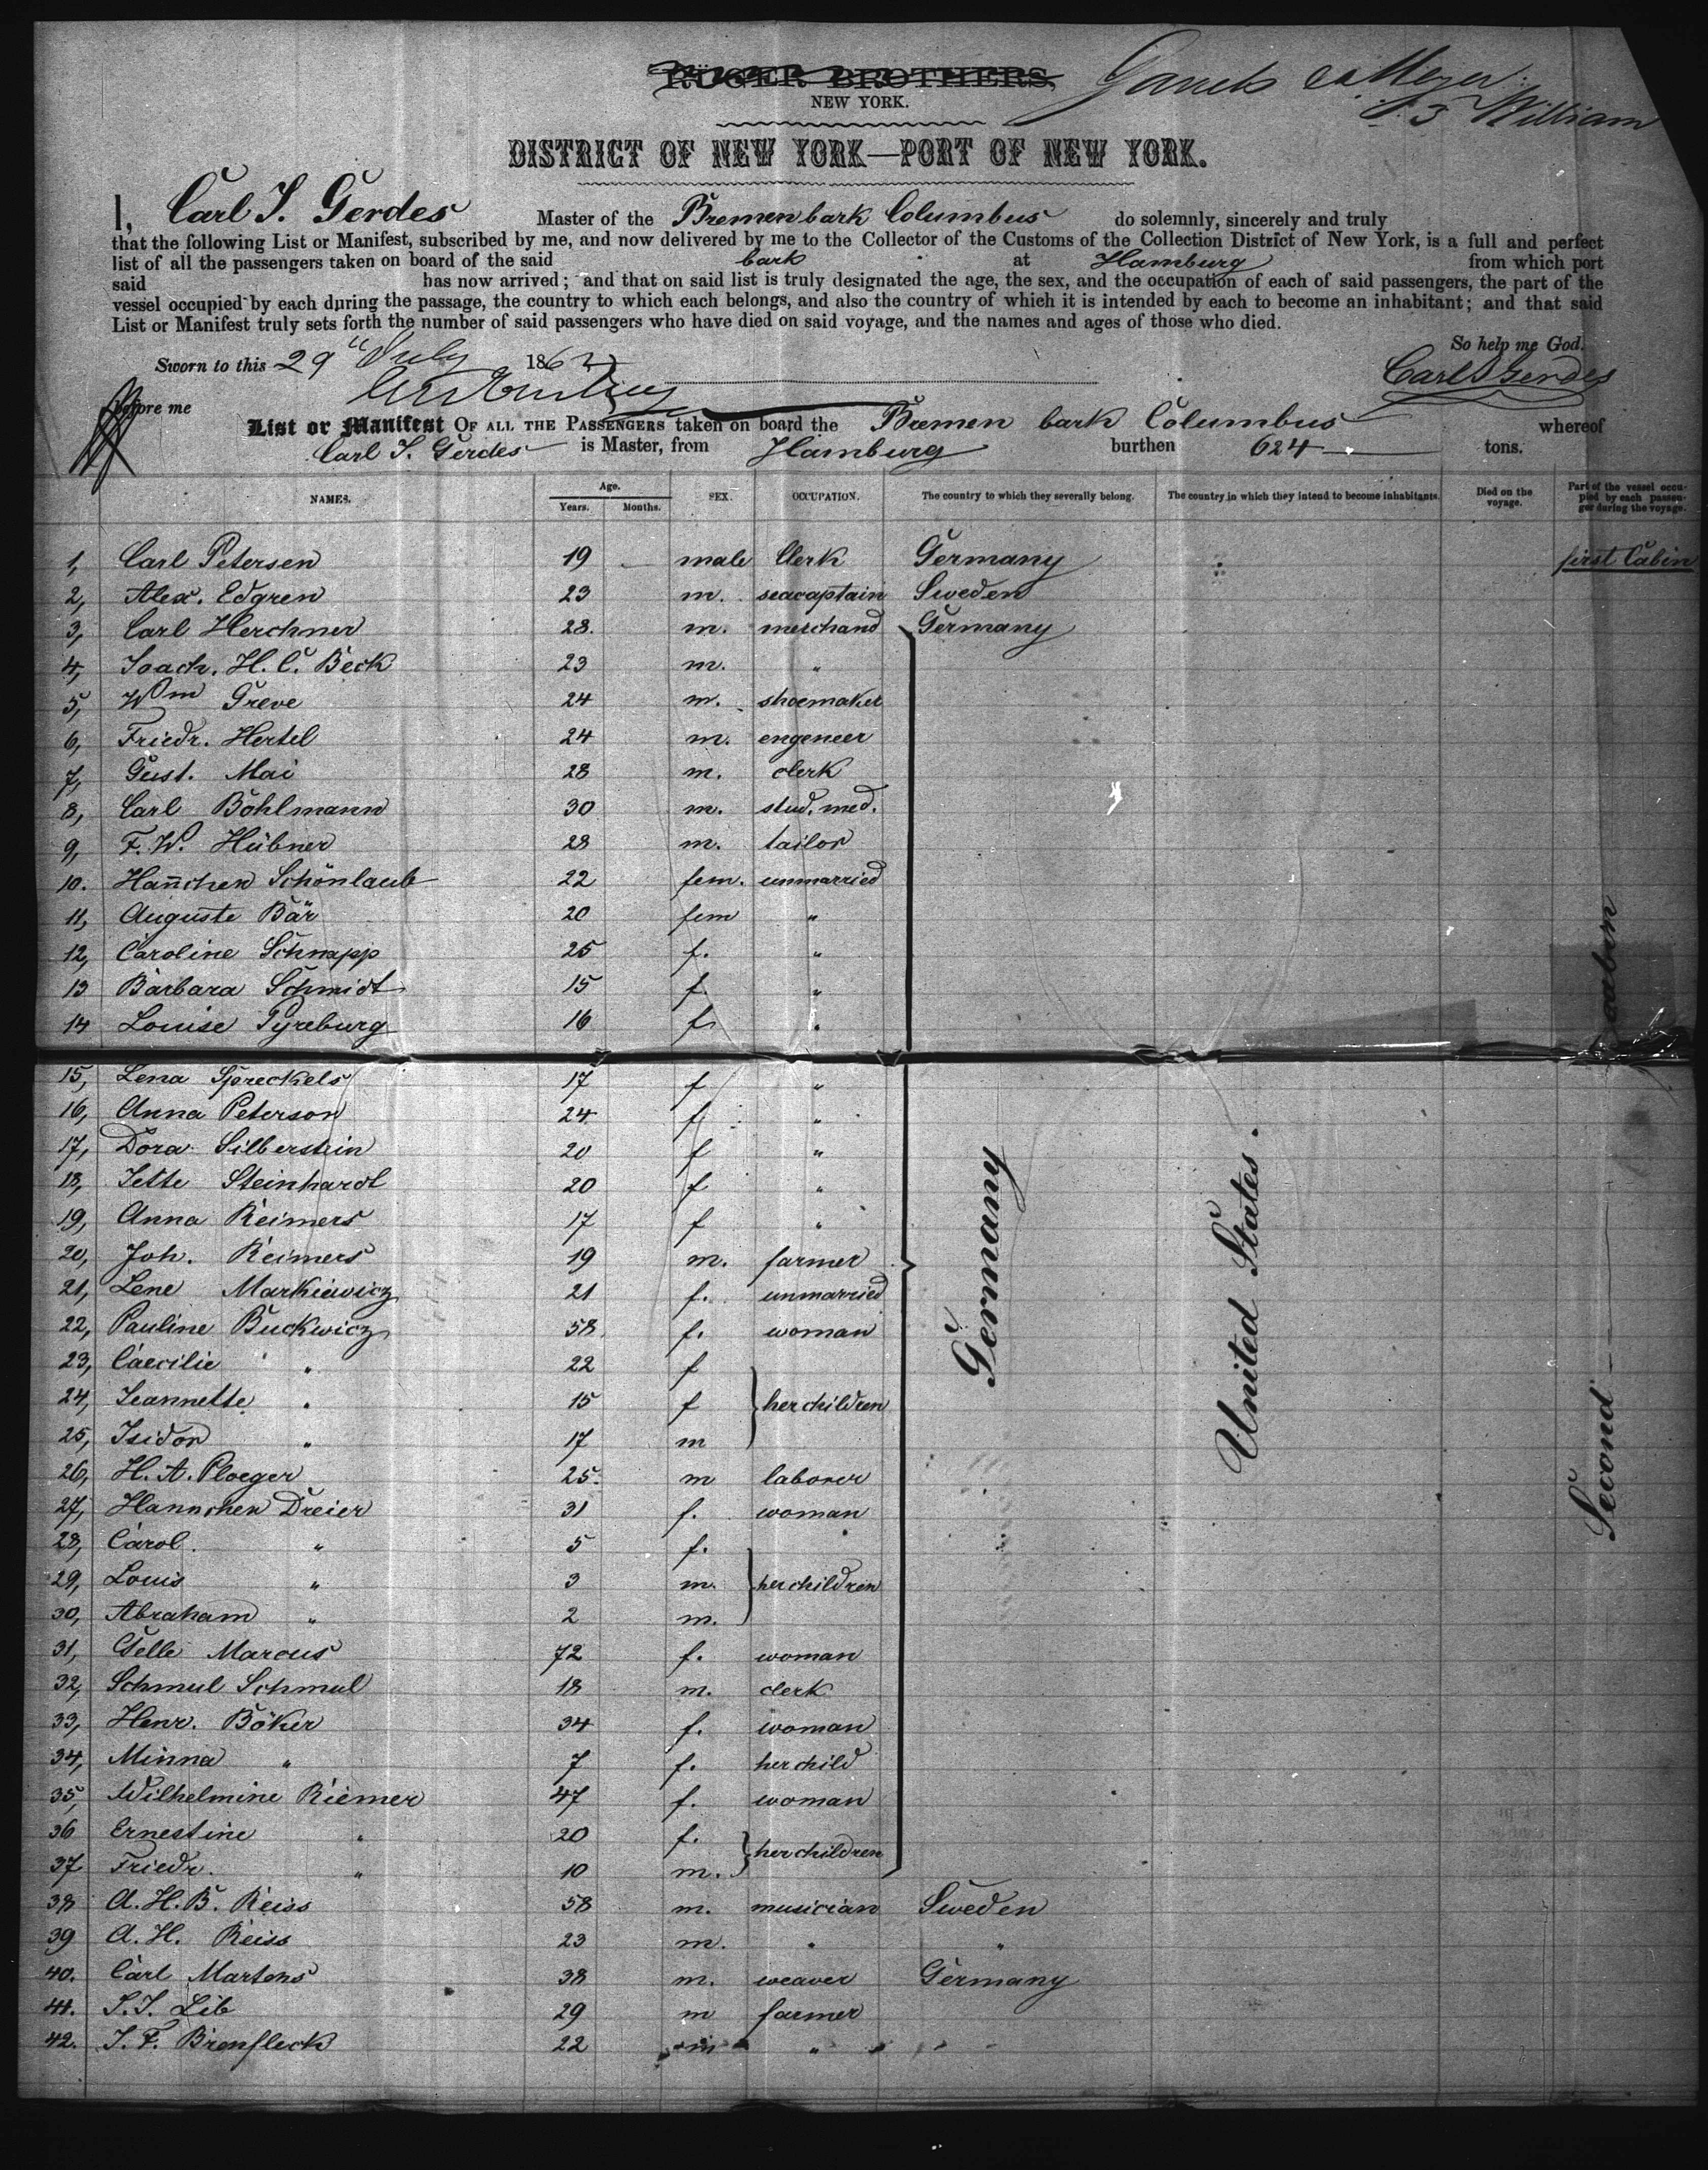 RÜGER BROTHERS,
NEW YORK.
Meyer
William
DISTRICT OF NEW YORK—PORT OF NEW YORK.
I, Carl J. Gerdes Master of the Bremen bark Columbus do solemnly, sincerely and truly
that the following List or Manifest, subscribed by me, and now delivered by me to the Collector of the Customs of the Collection District of New York, is a full and perfect
list of all the passengers taken on board of the said bark at Hamburg from which port
said has now arrived; and that on said list is truly designated the age, the sex, and the occupation of each of said passengers, the part of the
vessel occupied by each during the passage, the country to which each belongs, and also the country of which it is intended by each to become an inhabitant; and that said
List or Manifest truly sets forth the number of said passengers who have died on said voyage, and the names and ages of those who died.
So help me God.
Sworn to this 29" July 1862
Carl J Gerdes
before me
List or Manifest OF ALL THE PASSENGERS taken on board the Bremen bark Columbus whereof
Carl J. Gerdes is Master, from Hamburg burthen 624 tons.
NAMES. Age. Years. Months. SEX. OCCUPATION. The country to which they severally belong. The country in which they intend to become inhabitants. Died on the voyage. Part of the vessel occupied by each passenger during the voyage.
1, Carl Petersen 19 male Clerk Germany first Cabin
2, Alex. Edgren 23 m. seacaptain Sweden
3, Carl Herchner 28. m. merchand Germany
4, Joach. H. C. Beck 23 m. "
5, Wm Greve 24 m. shoemaker
6, Friedr. Hertel 24 m. engeneer
7, Gust. Mai 28 m. clerk
8, Carl Bohlmann 30 m. stud. med.
9, F. W. Hübner 28 m. tailor
10. Hañchen Schönlaub 22 fem. unmarried
11, Auguste Bär 20 fem "
12, Caroline Schnapp 25 f. "
13 Barbara Schmidt 15 f. "
14 Louise Pyreburg 16 f "
15, Lena Spreckels 17 f "
16, Anna Peterson 24 f "
17, Dora Silberstein 20 f "
18, Jette Steinhardt 20 f "
19, Anna Reimers 17 f "
20, Joh. Reimers 19 m. farmer
21, Lene Markiewicz 21 f. unmarried
22, Pauline Buckwicz 58 f. woman
23, Caecilie " 22 f
24, Jeannette " 15 f her children
25, Isidor " 17 m
26, H. A. Ploeger 25. m laborer
27, Hannchen Dreier 31 f. woman
28, Carol. " 5 f.
29, Louis " 3 m. her children
30, Abraham " 2 m.
31, Gelle Marcus 72 f. woman
32, Schmul Schmul 18 m. clerk
33, Henr. Böker 34 f. woman
34, Minna " 7 f. her child
35, Wilhelmine Riemer 47 f. woman
36 Ernestine " 20 f.
her children
37 Friedr. " 10 m.
38 A. H. B. Reiss 58 m. musician Sweden
39 A. H. Reiss 23 m. " "
40. Carl Martens 38 m. weaver Germany
41. S. J. Lib 29 m farmer
42. J. F. Bronfleck 22 m "
Germany
United States.
Second cabin